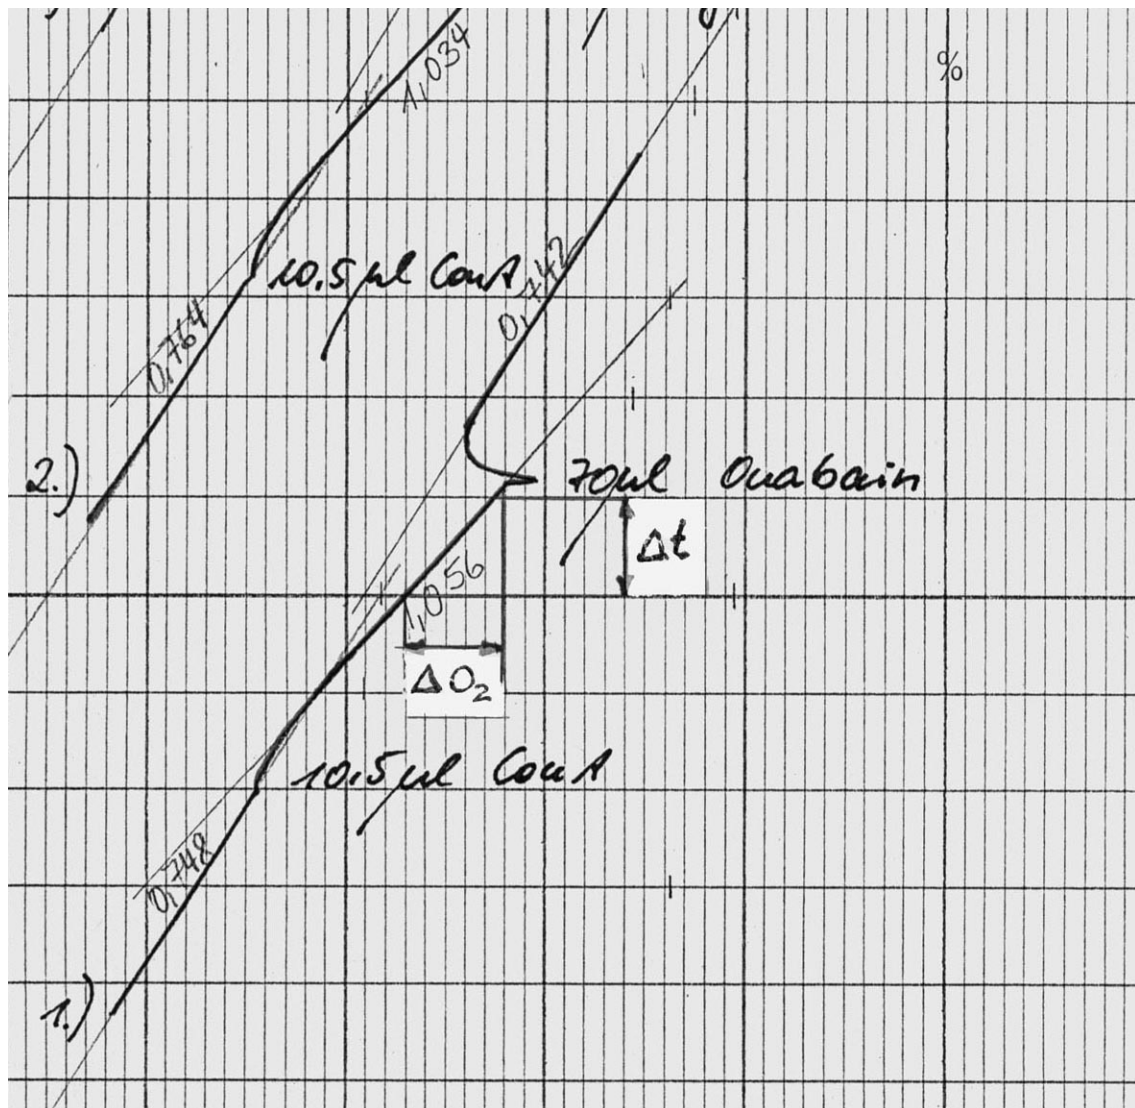 1,034
%
10.5 µl ConA
0,742
0,764
2.)
70µl Ouabain
Δt
1,056
ΔO₂
10.5 µl ConA
0,748
1.)